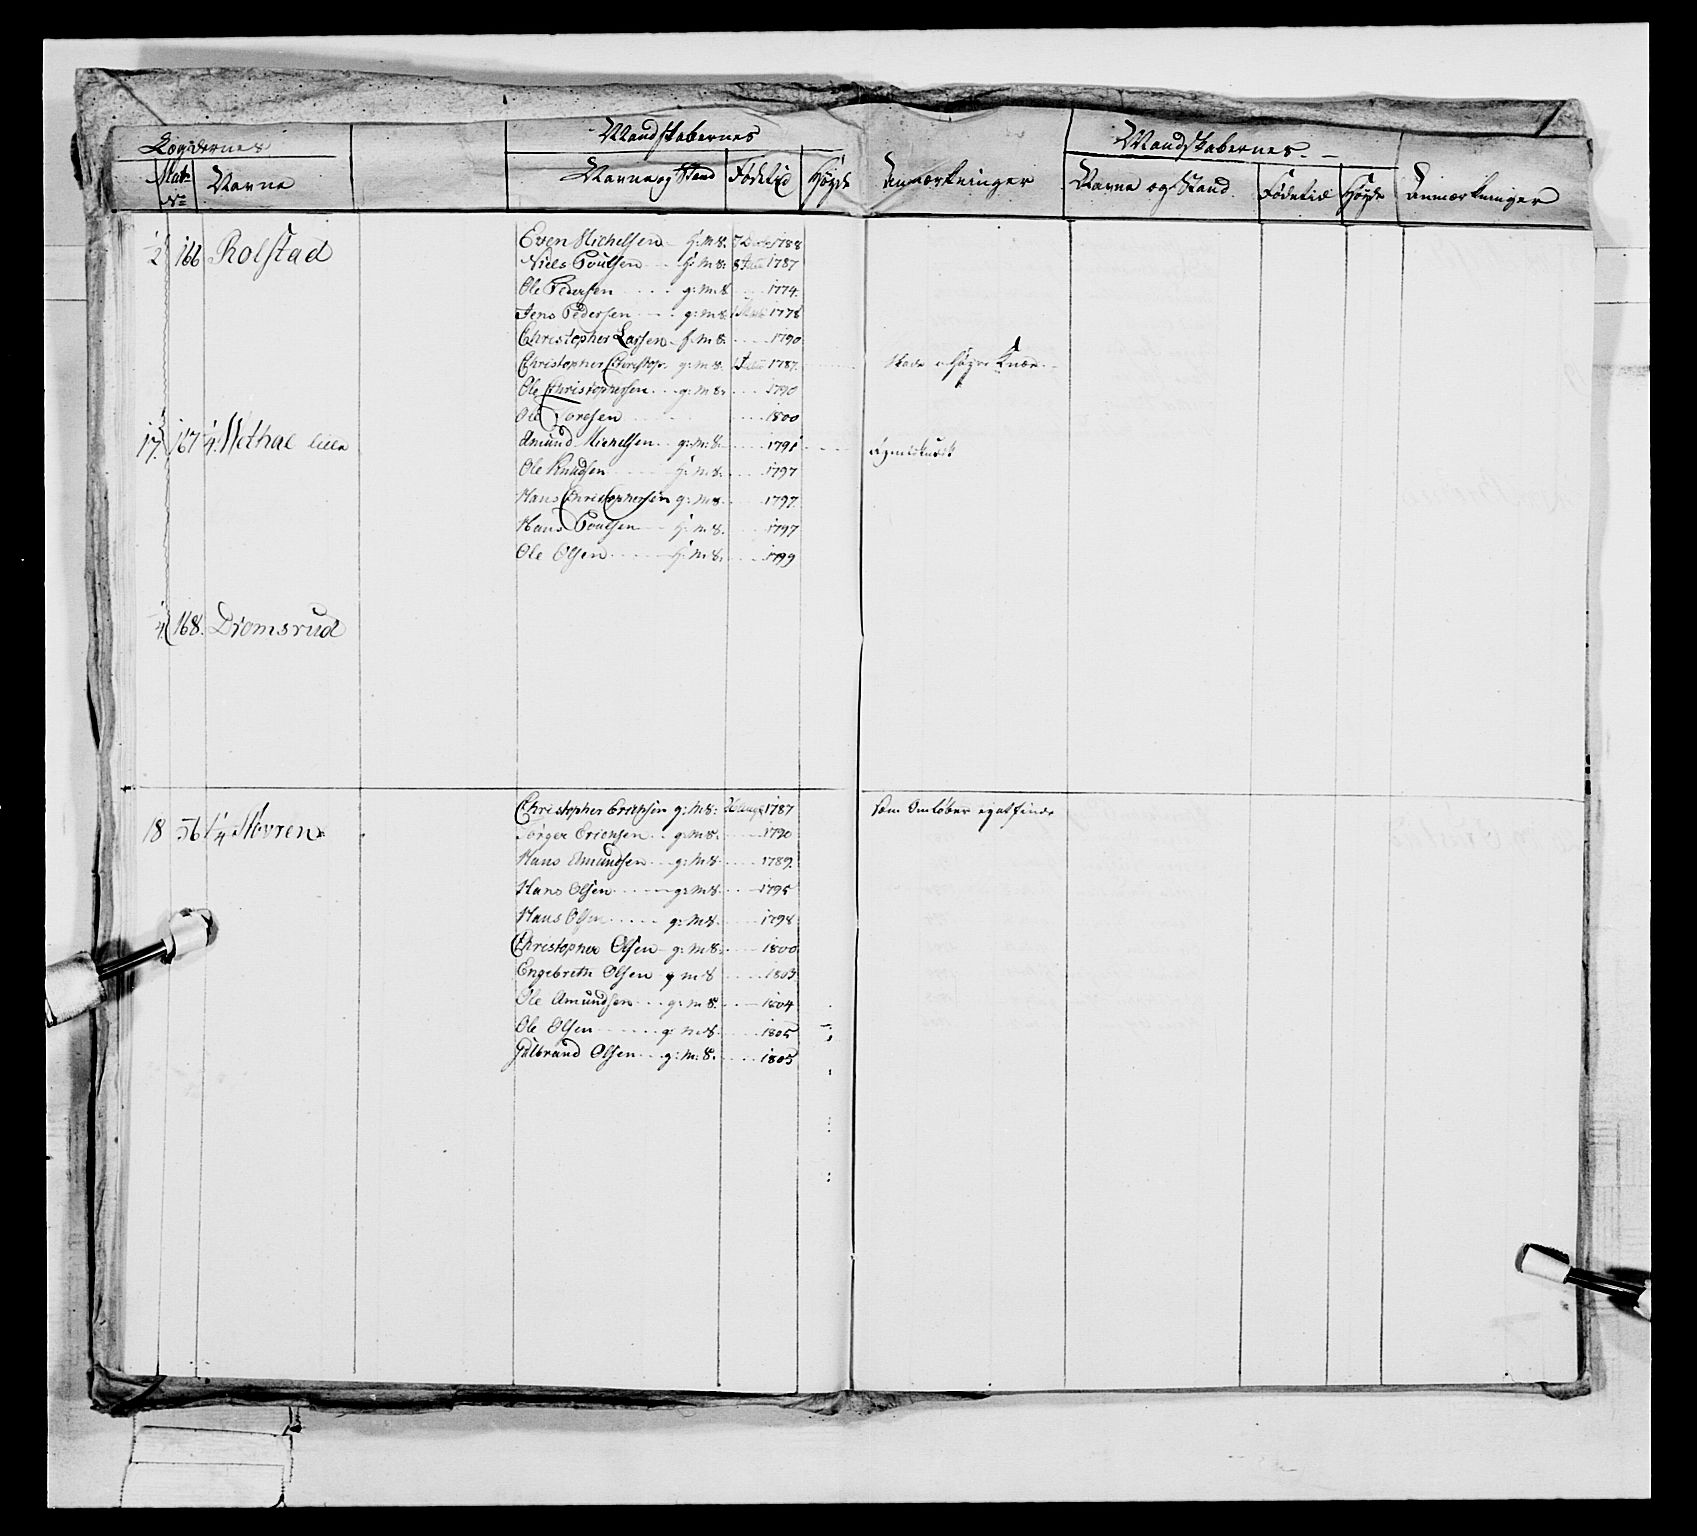 Lægdernes
Matr No Navne
Mandskabernes
Navne og Stand Fødetid Høyde
Anmærkninger
Mandskabernes
Navne og Stand Fødetid Høyde
Anmærkninger
1/2 166 Rolstad
Even Michelsen g: m 8. 7 1788
Niels Poulsen g: m 8. 8 1787
Ole Pedersen g: m 8 1774
Jens Pedersen g: m 8 1778
Christopher Larsen m 8. 1790
Christopher Christoph: g: m 8. 1787 Knæe
Ole Christophersen g: m 8. 1790
Ole 1800
17. 167 1/4 Methal lille
Amund Michelsen g: m: 8. 1791
Ole Knudsen g: m 8. 1797
Hans Christophersen g: m 8. 1797
Hans Poulsen g: m 8. 1797
Ole Olsen g: m 8. 1799
1/4 168. Diomsrud
18 1/4 Movren
Christopher Erichsen g: m 8: 1787 som Omløber
Jørger Erichsen g: m 8. 1790
Hans Amundsen g: m 8. 1789
Hans Olsen g: m 8. 1795
Hans Olsen g: m 8. 1798
Christopher Olsen g: m 8. 1800
Engebreth Olsen g m 8 1803
Ole Amundsen g: m 8. 1804
Ole Olsen g: m 8. 1805
Gulbrand Olsen g: m: 8. 1805